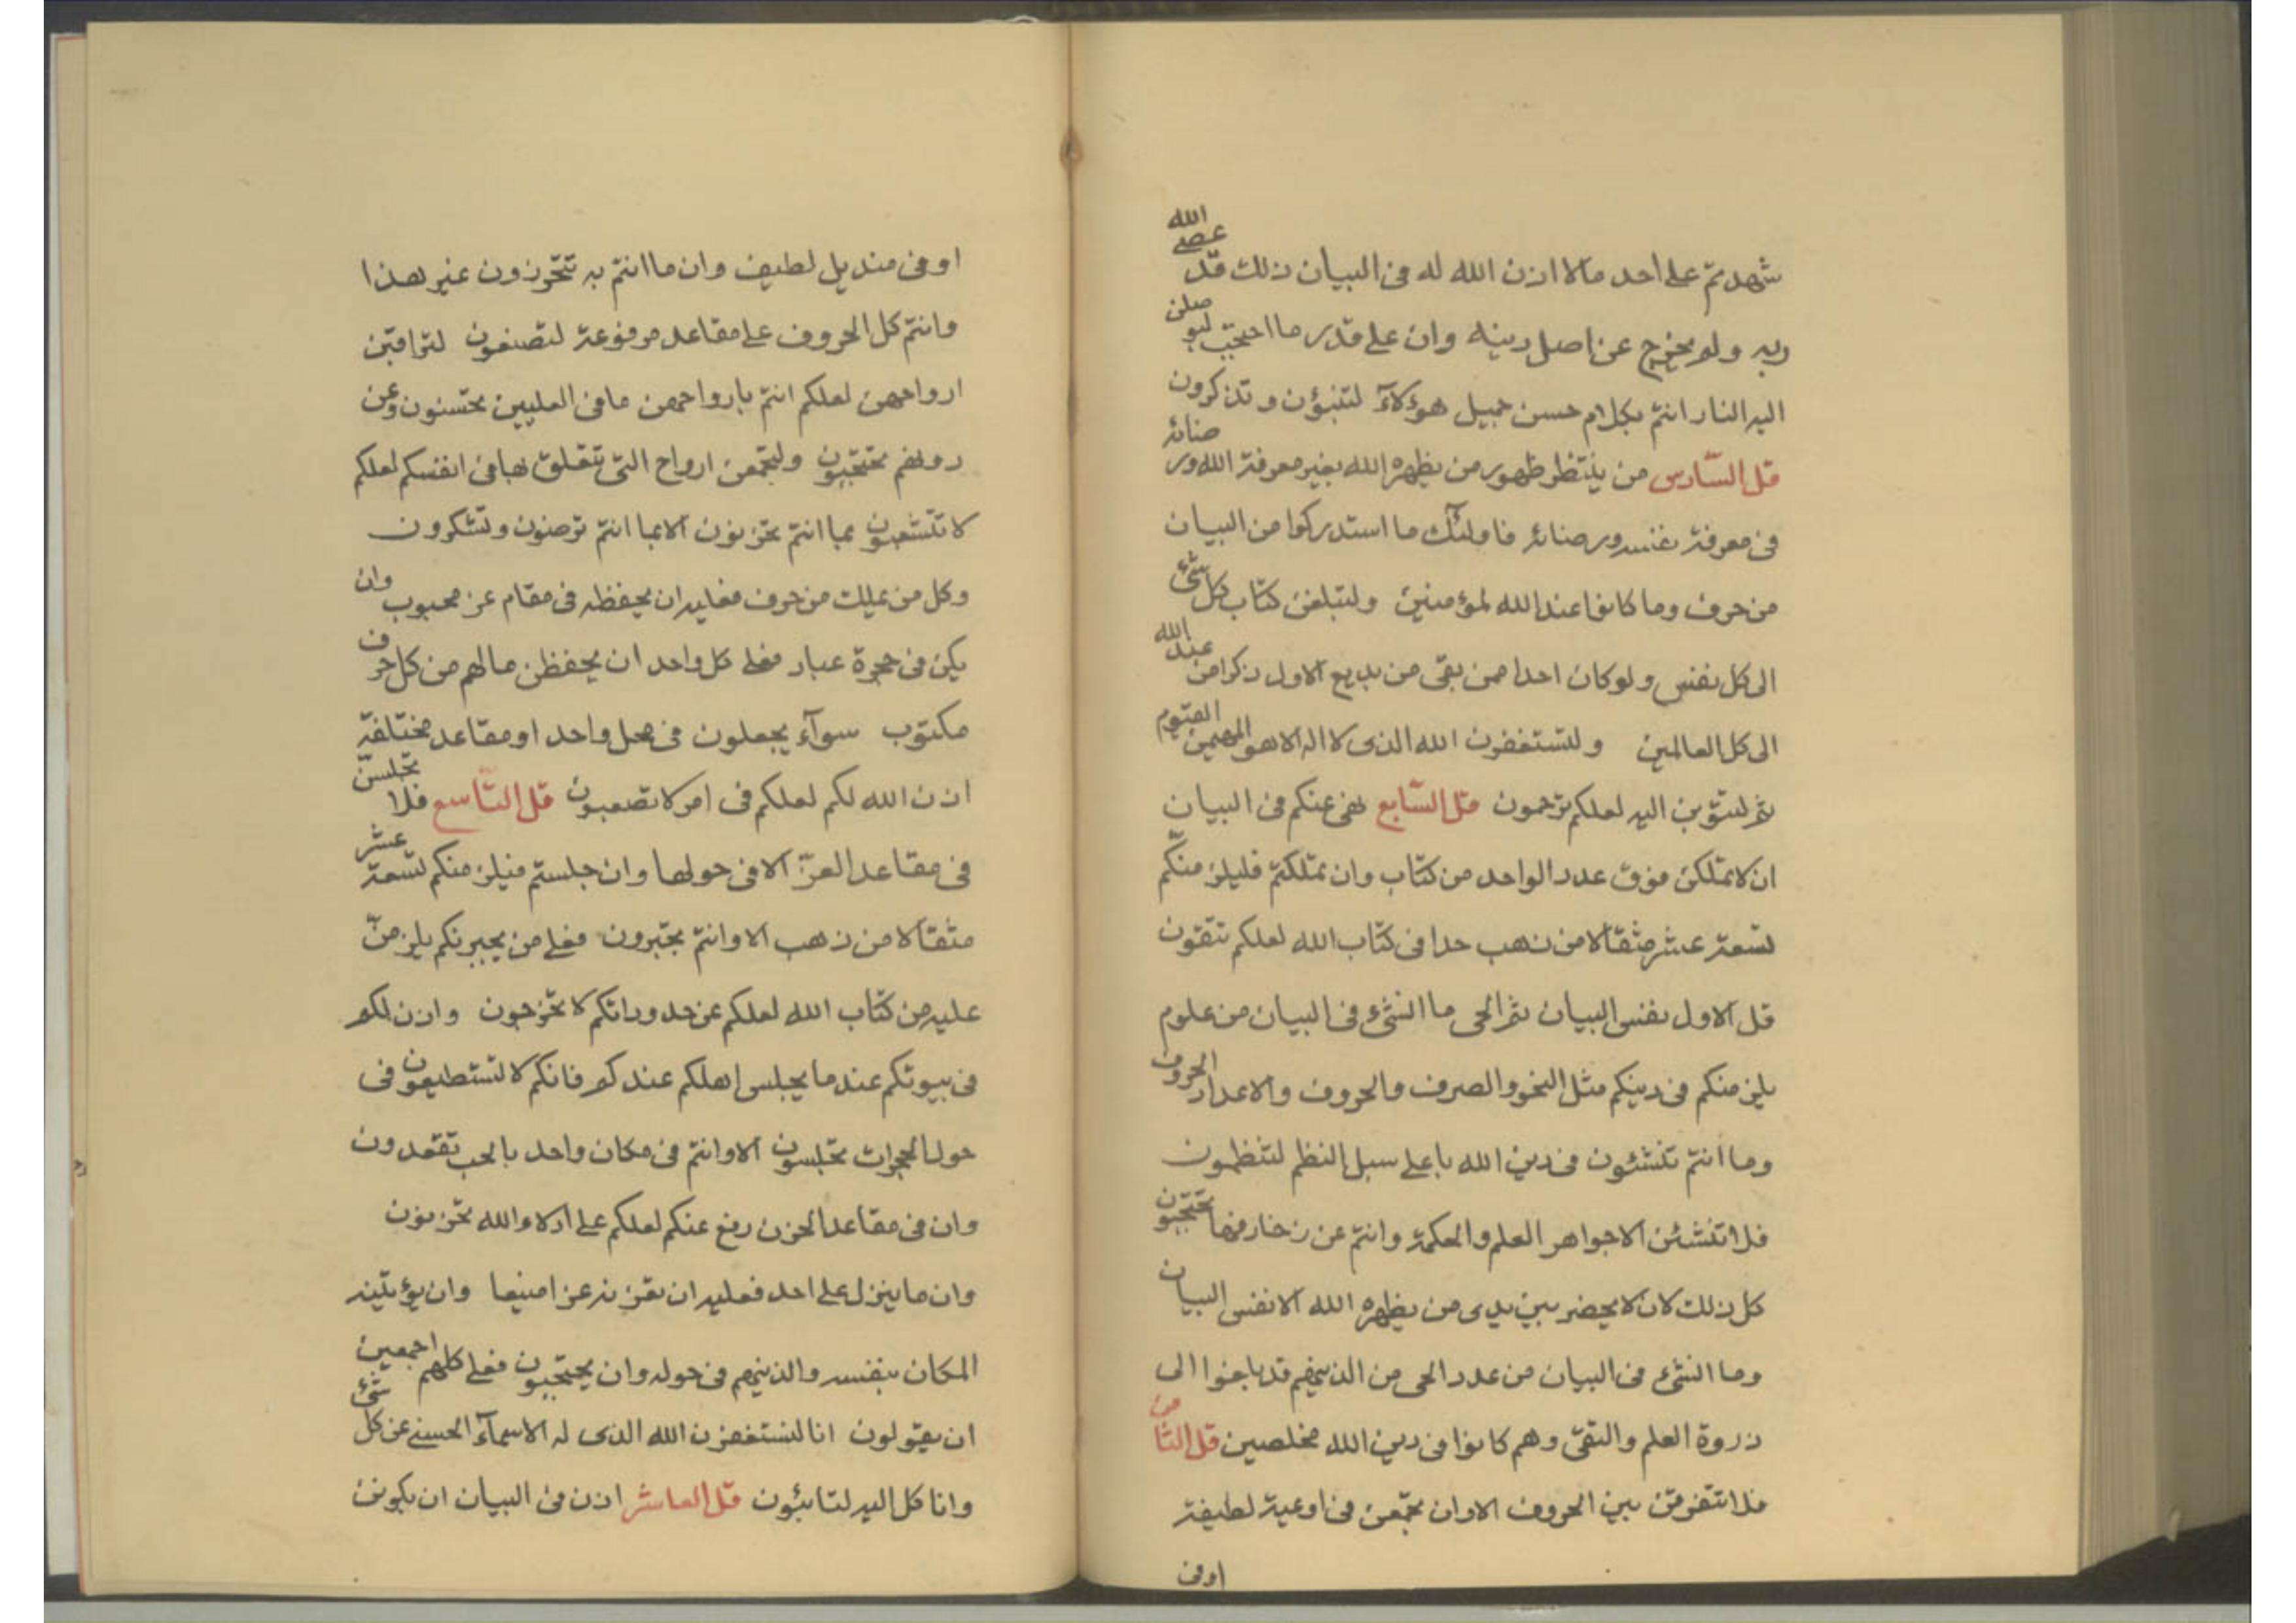 شهدتم على احد مالا اذن الله له فى البيان ذلك قد عصى الله
ربه ولم يخرج عن اصل دينه وان على قدر ما احتجب ليوصلن
اليه النار انتم بكلام حسن جميل هؤلآء لتنبؤن وتذكرون
قل السّادس من ينتظر ظهور من يظهره الله بغير معرفة الله ورضائه
فى معرفة نفسه ورضائه فاولئك ما استدركوا من البيان
من حرف وما كانوا عند الله لمؤمنين ولتبلغن كتاب كل شئ
الى كل نفس ولو كان احدا ممن بقى من بديع الاول ذكرا من عند الله
الى كل العالمين ولتستغفرن الله الذى لا اله الا هو المهيمن القيّوم
ثم لتتوبن اليه لعلكم ترحمون قل السّابع نهى عنكم فى البيان
ان لا تملكن فوق عدد الواحد من كتاب وان تملكتم فليلزمنّكم
تسعة عشر مثقالا من ذهب حدا فى كتاب الله لعلكم تتقون
قل الاول نفس البيان ثم الحى ما انشئ فى البيان من علوم
يلزمنكم فى دينكم مثل النحو والصرف والحروف والاعداد الحروف
وما انتم تنشئون فى دين الله باعلى سبل النظم لتنظمون
فلا تنشئن الا جواهر العلم والحكمة وانتم عن زخارفها تحتجبون
كل ذلك لان لا يحضر بين يدى من يظهره الله الا نفس البيان
وما انشئ فى البيان من عدد الحى من الذينهم قد بلغوا الى
ذروة العلم والتقى وهم كانوا فى دين الله مخلصين قل الثامن
فلا تتفرقن بين الحروف الا وان تجمعن فى اوعية لطيفة
اوفى
اوفى منديل لطيف وان ما انتم به تتحرزون غير هذا
وانتم كل الحروف على مقاعد مرفوعة لتصنعون لتراقبن
ارواحهن لعلكم انتم بارواحهن مافى العليين تحسنون وعن
دونهم تحتجبون ولتجمعن ارواح التى تتعلق بها فى انفسكم لعلكم
لا تتشعبون بما انتم تحزنون الا بما انتم ترضون وتشكرون
وكل من يملك من حرف فعليه ان يحفظه فى مقام عز محبوب وان
يكن فى حجرة عباد فعلى كل واحد ان يحفظن مالهم من كل حرف
مكتوب سوآء يجعلون فى محل واحد او مقاعد مختلفة
اذن الله لكم لعلكم فى امر لا تصعبون قل التّاسع فلا تجلسنّ
فى مقاعد العزّ الا فى حولها وان جلستم فيلزمنكم تسعة عشر
مثقالا من ذهب الا وانتم تجبرون فعلى من يجبرنكم يلزمنّ
عليه من كتاب الله لعلكم عن حدوداتكم لا تخرجون واذن لكم
فى بيوتكم عند ما يجلس اهلكم عندكم فانكم لا تستطيعون فى
حول الحجرات تجلسون الا وانتم فى مكان واحد بالحب تقعدون
وان فى مقاعد الحزن رفع عنكم لعلكم على ادلاء الله تحزنون
وان ما ينزل على احد فعليه ان يعززنه عزا منيعا وان يؤتينه
المكان بنفسه والذينهم فى حوله وان يحتجبون فعلى كلهم اجمعين
ان يقولون انا لنستغفرن الله الذى له الاسمآء الحسنى عن كل شئ
وانا كل اليه لتائبون قل العاشر اذن فى البيان ان يكونن